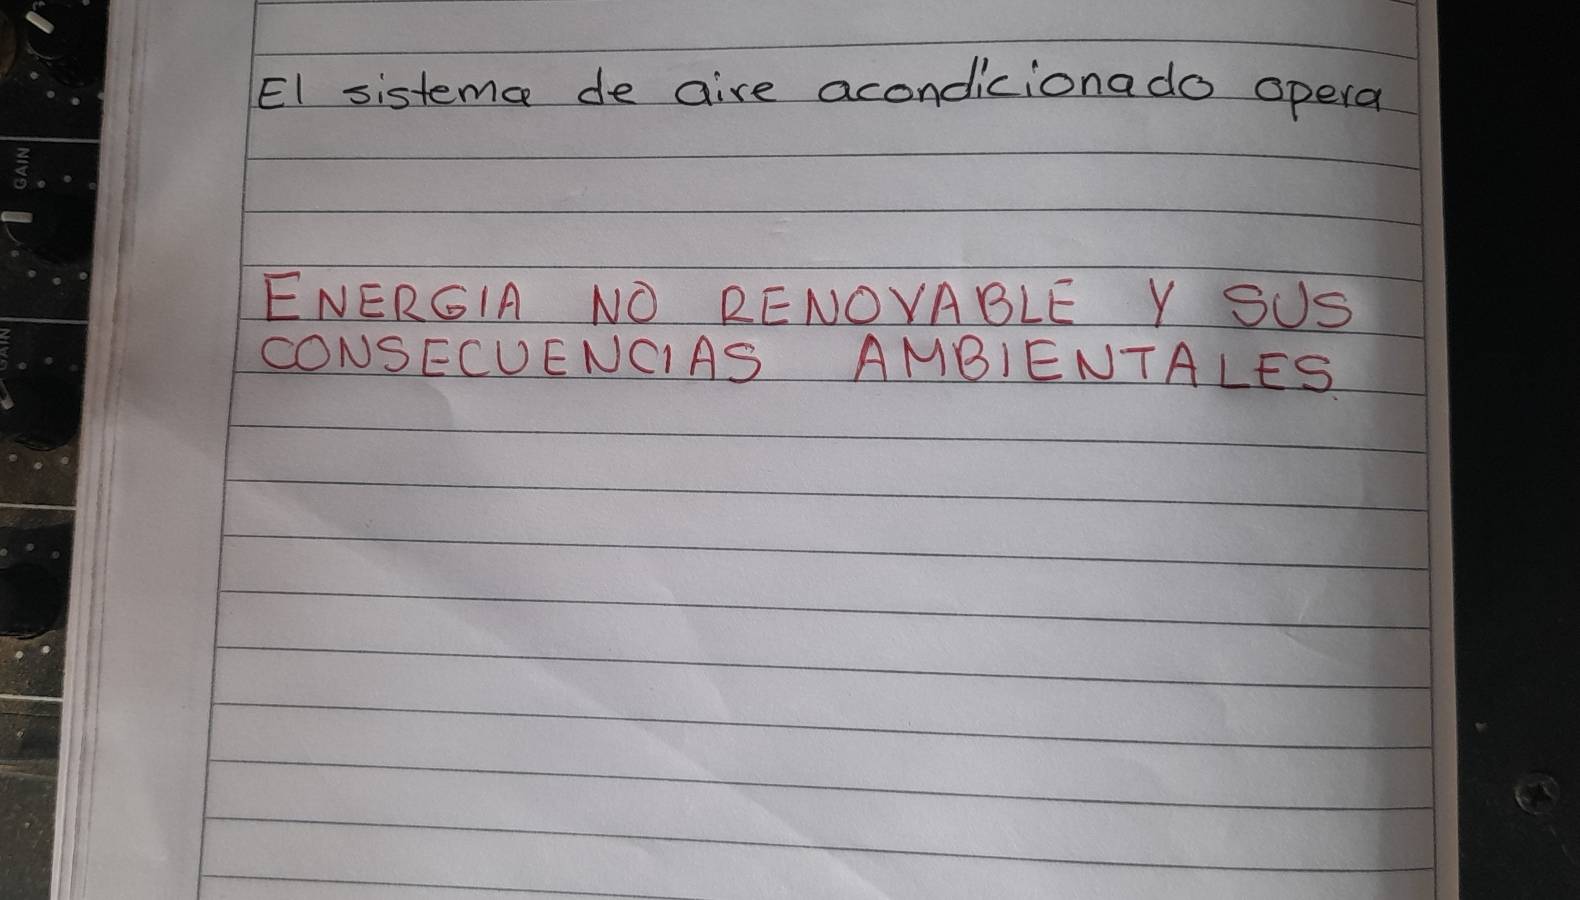 El sistema de aire acondicionado opera
ENERGIA NO RENOVABLE Y SUS
CONSECUENCIAS AMBIENTALES.
GAIN
GAIN